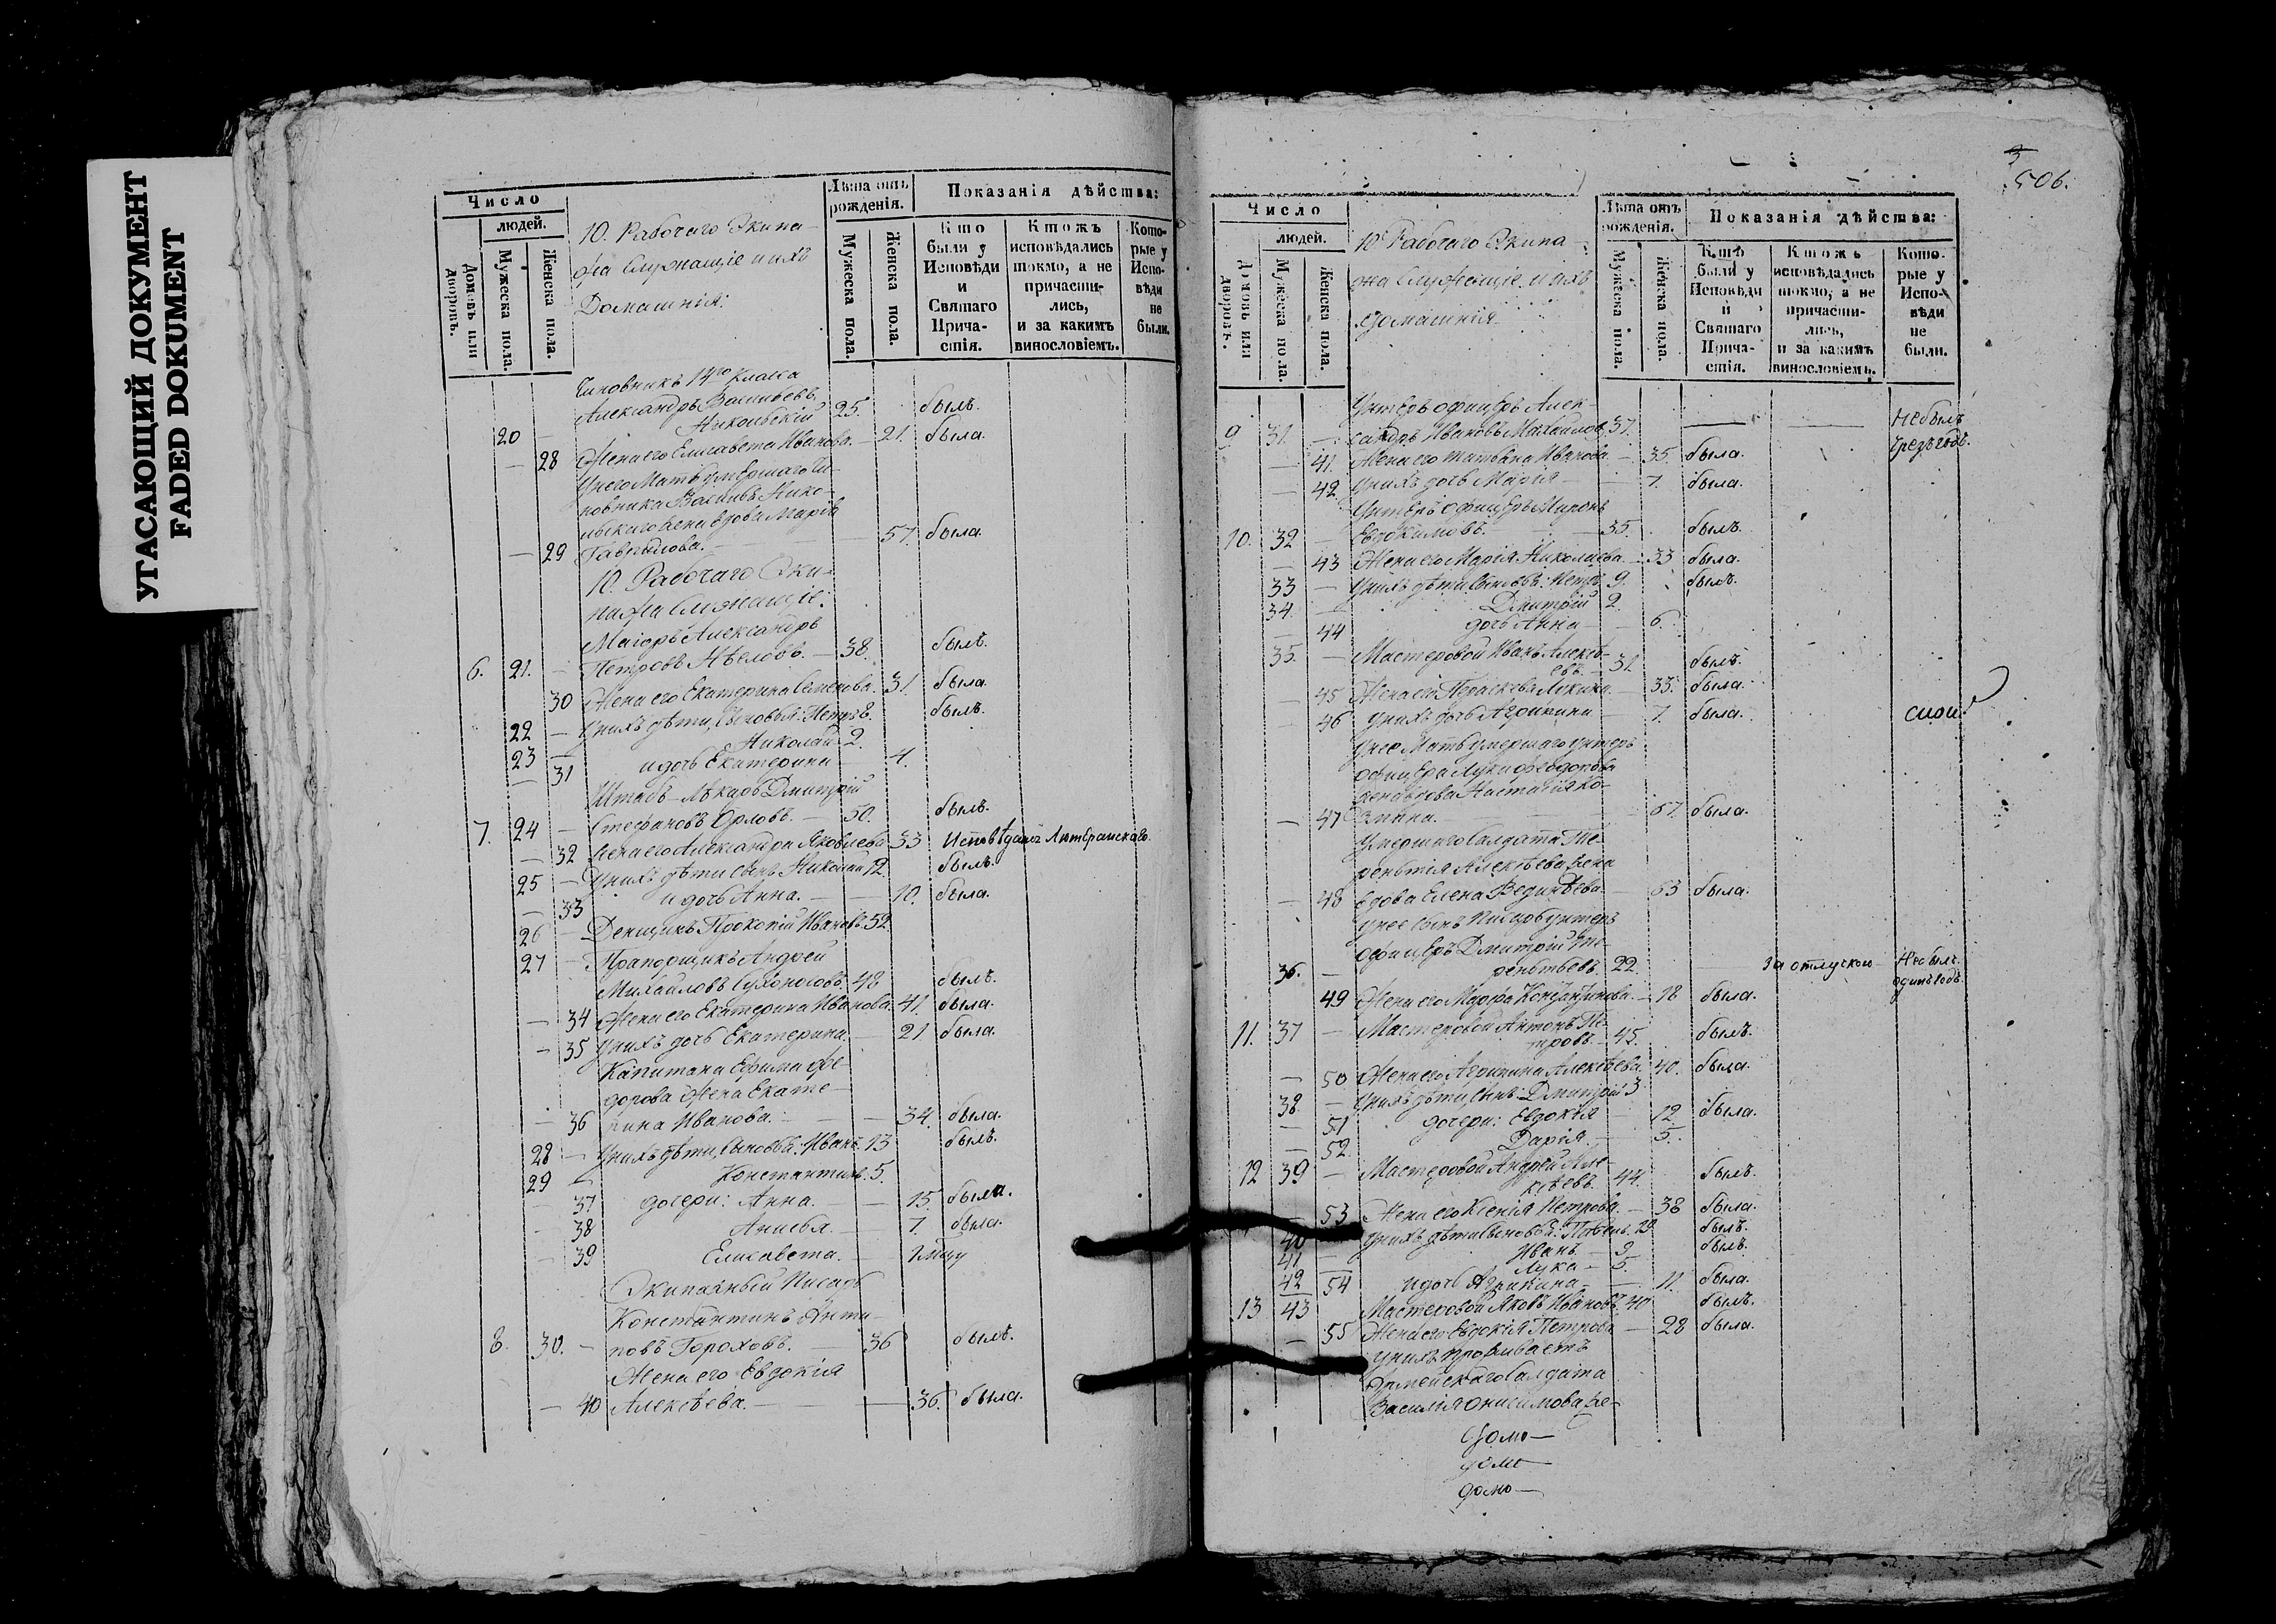 УГАСАЮЩИЙ ДОКУМЕНТ
FADED DOKUMENT
Число
людей.
Домовъ или дворовъ.
Мужеска пола.
Женска пола.
10. Рабочаго Экипа-
жа Служащіе и ихъ
Домашнія:
Лѣта отъ рожденія.
Мужеска пола.
Женска пола.
Показанія дѣйства:
Кто были у Исповѣди и Святаго Причастія.
Ктожъ исповѣдались токмо, а не причастились, и за какимъ винословіемъ.
Которые у Исповѣди не были.
Чиновникъ 14го класса
Александръ Васильевъ
20 — Никольскій 25. былъ.
— 28 Жена его Елисавета Иванова. — 21. была.
У него Мать умершаго Чи-
новника Василья Нико-
льскаго жена вдова Марія
— 29 Гаврилова. — 57. была.
10. Рабочаго Эки-
пажа Служащіе:
Маіоръ Александръ
6. 21. — Петровъ Нѣловъ. — 38. былъ.
30 Жена его Екатерина Семенова. 31. была.
22 — У нихъ дѣти, сыновья: Петръ. былъ.
23 — Николай 2.
— 31 и дочь Екатерина 4.
Штабъ-Лѣкарь Дмитрій
7. 24 — Стефановъ Орловъ. — 50. былъ.
— 32 Жена его Александра Яковлева 33 Исповѣданія Лютеранскаго.
25 — У нихъ дѣти сынъ Николай 12. былъ.
— 33 и дочь Анна. — 10. была.
26 — Денщикъ Прокопій Ивановъ 52
27 — Прапорщикъ Андрей
Михайловъ Сухоносовъ. 48 былъ.
— 34 Жена его Екатерина Иванова. 41. была.
— 35 У нихъ дочь Екатерина. — 21 была.
Капитана Ефима Фе-
дорова жена Екате-
— 36 рина Иванова. — 34. была.
28 — У нихъ дѣти, сыновья: Иванъ. 13 былъ.
29 — Константинъ. 5.
— 37 дочери: Анна. — 15. была.
— 38 Анисья. — 7. была.
— 39 Елисавета. —
Экипажный Писарь
Константинъ Анти-
8. 30. — повъ Гороховъ. — 36 былъ.
Жена его Евдокія
— 40 Алексѣева. — 36. была.
506.
Число
людей.
Домовъ или дворовъ.
Мужеска пола.
Женска пола.
10 Рабочаго Экипа-
жа Служащіе и ихъ
домашнія
Лѣта отъ рожденія.
Мужеска пола.
Женска пола.
Показанія дѣйства:
Кто были у Исповѣди и Святаго Причастія.
Ктожъ исповѣдались токмо, а не причастились, и за какимъ винословіемъ.
Которые у Исповѣди не были.
Унтеръ офицеръ Алек-
9 31. — сандръ Ивановъ Михайловъ 37. — — Не былъ
— 41. Жена его Татьяна Иванова. — 35. была.
— 42 У нихъ дочь Марія — 7. была.
Унтеръ офицеръ Миронъ
10. 32 — Евдокимовъ. — 35. былъ.
— 43 Жена его Марія Николаева — 33 была.
33 — У нихъ дѣти сыновья: Петръ 9. былъ.
34. — Дмитрій 2.
— 44 дочь Анна — 6.
35. — Мастеровой Иванъ Алексѣ-
евъ. — 31. былъ.
— 45 Жена его Параскева Лукина. — 33. была.
— 46 У нихъ дочь Агрипина — 7. была.
У нее Мать умершаго унтеръ
офицера Луки Феодорова
жена вдова Настасія Ко-
— 47 — 67. была.
Умершаго Салдата Те-
рентія Алексѣева жена
— 48 вдова Елена — 63 была.
У нее сынъ Писарь унтеръ
офицеръ Дмитрій Те-
36. — рентьевъ. 22. — за отлучкою — Не былъ
одинъ годъ.
49 Жена его Марфа Константинова. — 18 была.
11. 37 — Мастеровой Антонъ Пе-
тровъ. — 45. былъ.
— 50 Жена его Агрипина Алексѣева. 40. была.
38. — У нихъ дѣти, сынъ: Дмитрій 3
— 51 дочери: Евдокія — 12. была.
— 52. Дарія. — 5.
12 39 — Мастеровой Андрей Але-
ксѣевъ. 44. былъ.
— 53 Жена его Ксенія Петрова. — 38 была.
40 — У нихъ дѣти сыновья: Павелъ. былъ.
41 — Иванъ. — 9. былъ.
42 Лука — 5.
— 54 и дочь Агрипина. — 11. была.
13 43 Мастеровой Яковъ Ивановъ. 40 былъ.
— 55 Жена его Евдокія Петрова — 28 была.
У нихъ проживаетъ
Армейскаго Салдата
Василія Онисимова же-